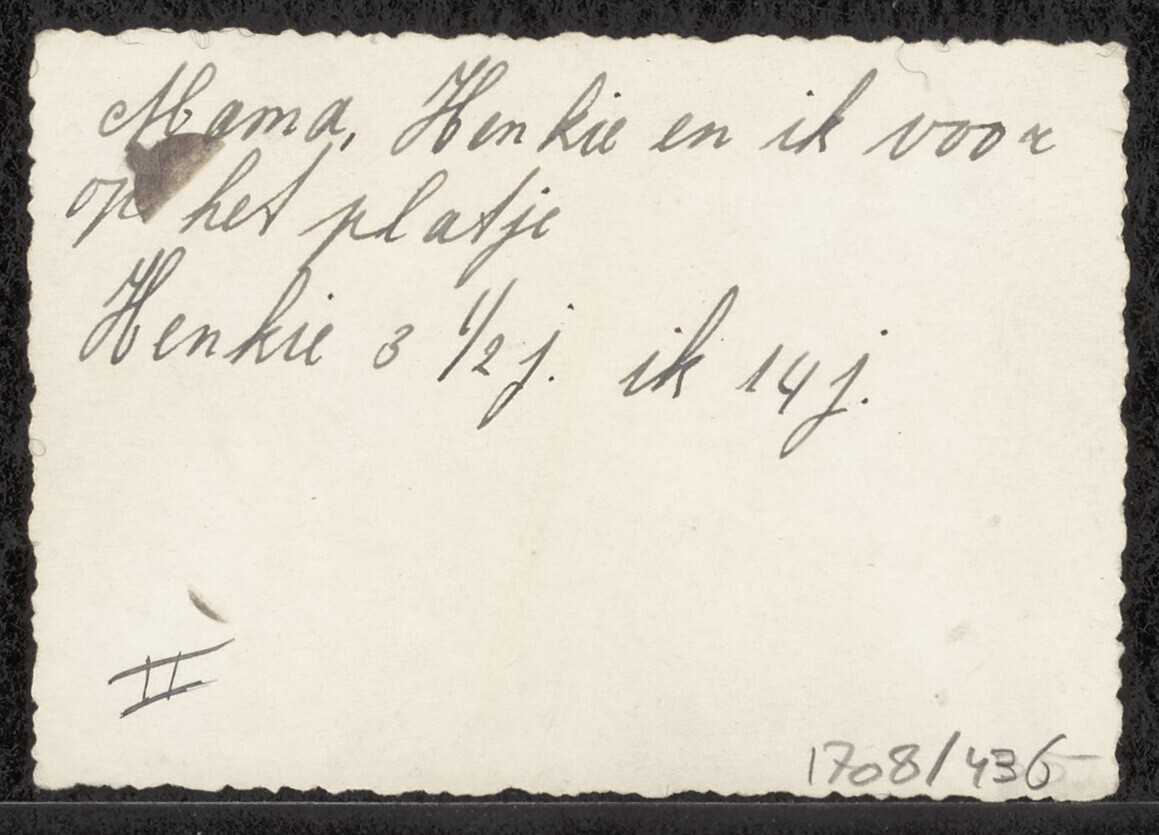 Mama, Henkie en ik voor
op het platje
Henkie 3 1/2 j. ik 14 j.
II
1708/436